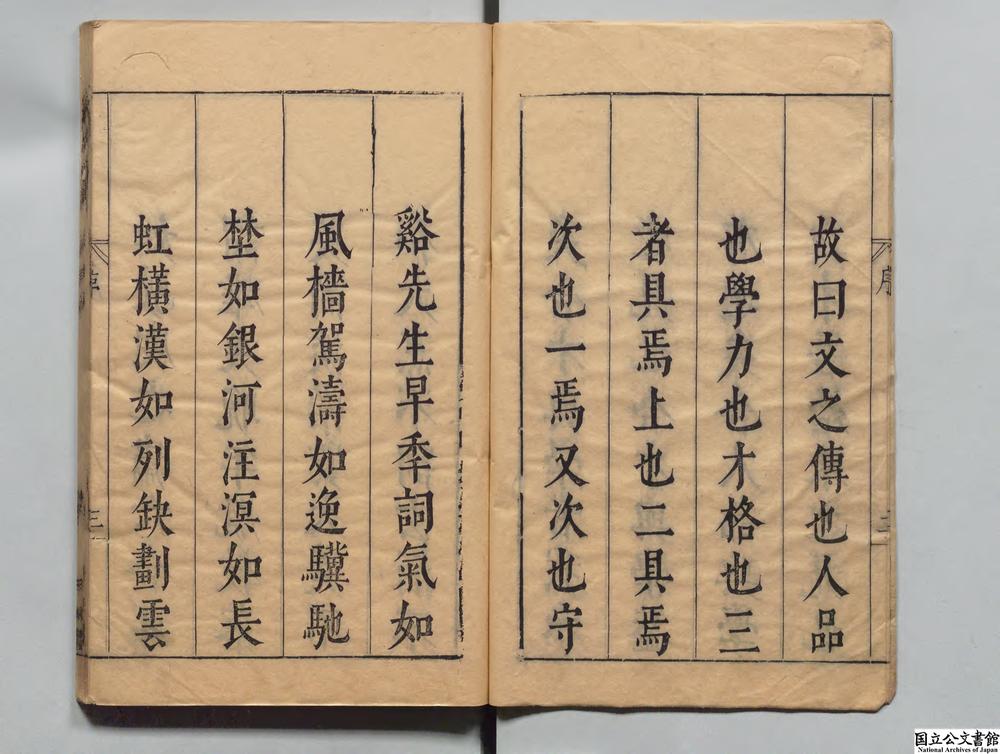 故曰文之傳也人品
也學力也才格也三
者具焉上也二具焉
次也一焉又次也守
谿先生早季詞氣如
風檣駕濤如逸驥馳
埜如銀河注溟如長
虹橫漢如列缺劃雲
序
三
国立公文書館
National Archives of Japan